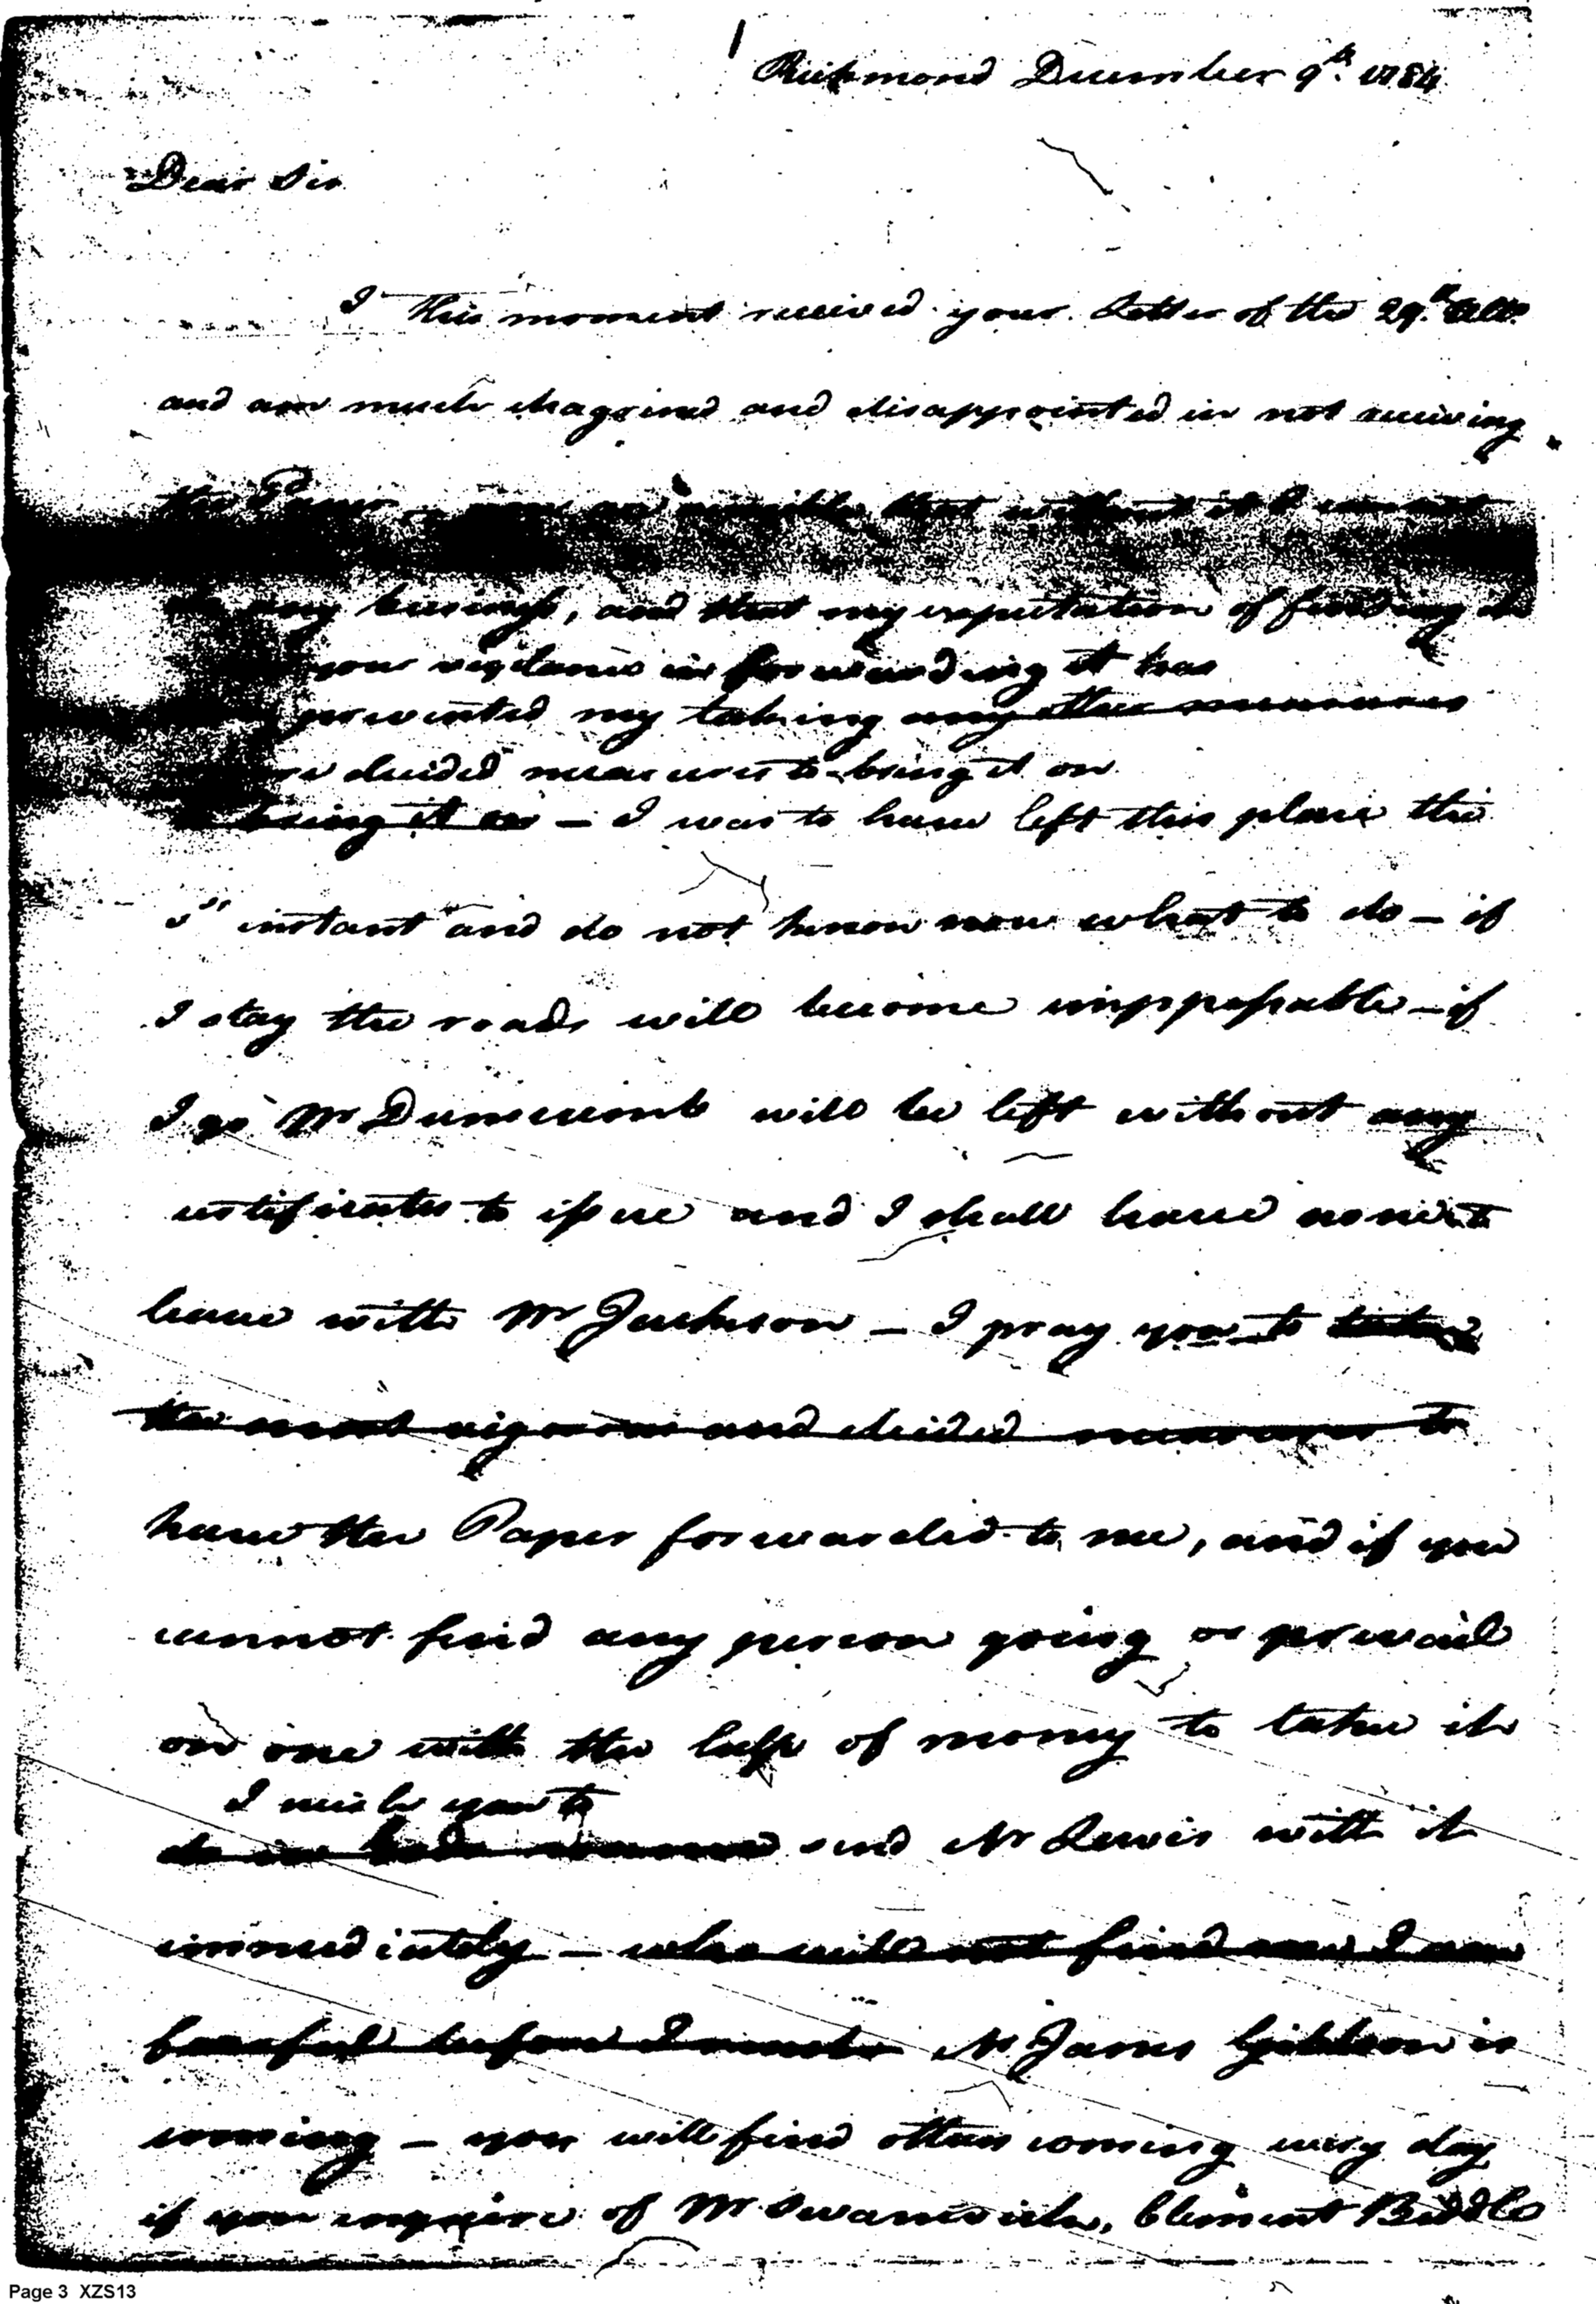 1
Richmond December 9th. 1784
Dear Sir
I this moment received your Letter of the 29th. Ulto.
and am much chagrined and disappointed in not receiving
the Paper – you are sensible that without it I cannot
do any business, and that my expectation of finding it
your vigilance in forwarding it has
prevented my taking any other measures
more decided measures to bring it on
to bring it on – I was to have left this place the
instant and do not know now what to do – if
I stay the roads will become imppassable – if
I go Mr Dunscomb will be left without any
certificates to issue and I shall have none to
leave with Mr Jackson – I pray you to take
the most vigorous and decided measures to
have the Paper forwarded to me, and if you
cannot find any person going or prevail
on one with the help of money to take it
I wish you to
send Mr Lewis with it
immediately – who will not find me I am
before I Mr James Gibbson is
coming – you will find others coming every day
if you enquire of Mr Swanwick, Clement Biddle
Page 3 XZS13